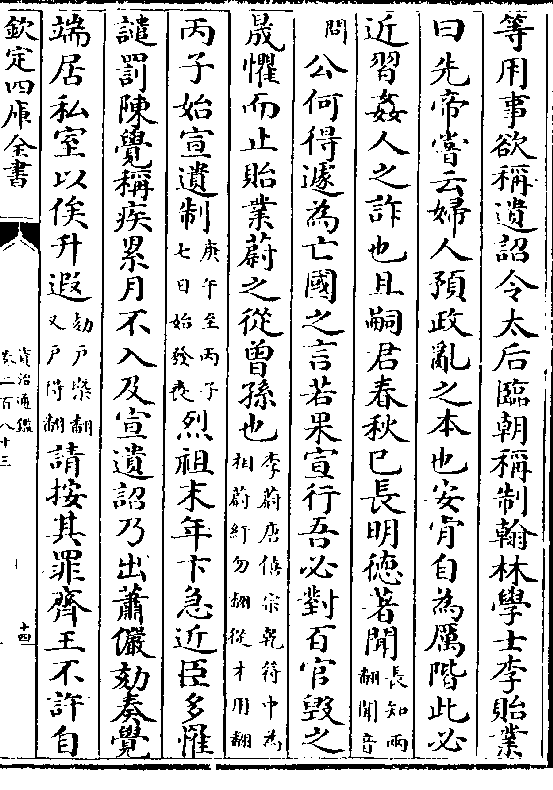 等用事欲稱遺詔令太后臨朝稱制翰林學士李貽業
曰先帝嘗云婦人預政亂之本也安肯自為厲階此必
近習姦人之詐也且嗣君春秋已長明德著聞長知兩翻聞音
問公何得遽為亡國之言若果宣行吾必對百官毀之
晟懼而止貽業蔚之從曾孫也李蔚唐僖宗乾符中為相蔚紆勿翻從才用翻
丙子始宣遺制庚午至丙子七日始發喪烈祖末年卞急近臣多罹
譴罰陳覺稱疾累月不入及宣遺詔乃出蕭儼劾奏覺
端居私室以俟升遐劾戶槩翻又戶得翻請按其罪齊王不許自
欽定四庫全書
資治通鑑
卷二百八十三
十四